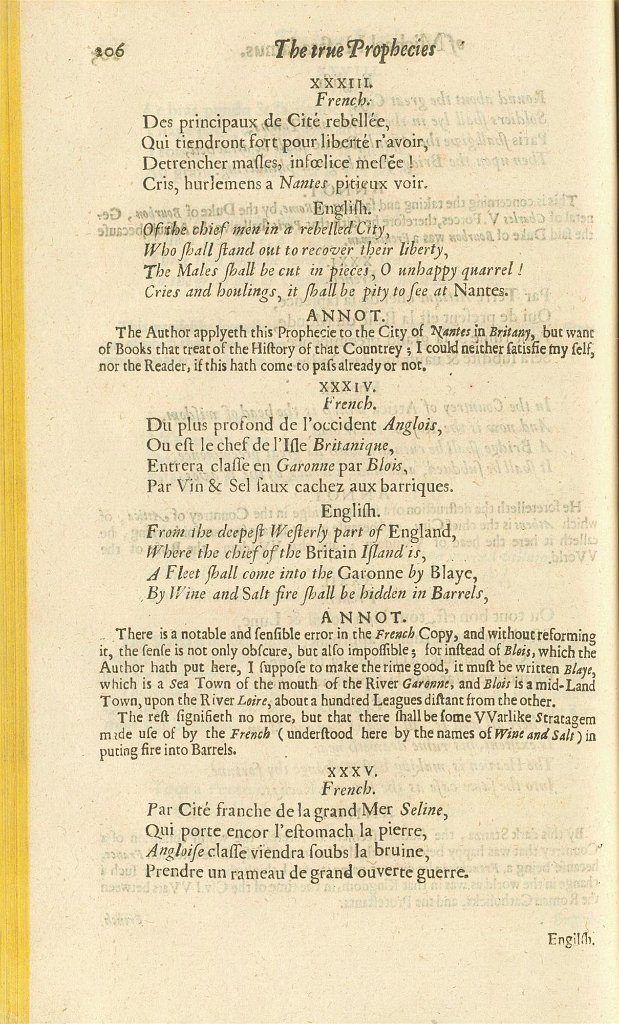 206 The true Prophecies
XXXIII.
French.
Des principaux de Cité rebellée,
Qui tiendront fort pour liberté r'avoir,
Detrencher maſles, infœlice meſée !
Cris, hurlemens a Nantes pitieux voir.
Engliſh.
Of the chief men in a rebelled City,
Who ſhall ſtand out to recover their liberty,
The Males ſhall be cut in pieces, O unhappy quarrel !
Cries and houlings, it ſhall be pity to ſee at Nantes.
ANNOT.
The Author applyeth this Prophecie to the City of Nantes in Britany, but want
of Books that treat of the Hiſtory of that Countrey ; I could neither ſatisfie my ſelf,
nor the Reader, if this hath come to paſs already or not.
XXXIV.
French.
Du plus profond de l'occident Anglois,
Ou eſt le chef de l'Iſle Britanique,
Entrera claſſe en Garonne par Blois,
Par Vin & Sel faux cachez aux barriques.
Engliſh.
From the deepeſt Weſterly part of England,
Where the chief of the Britain Iſland is,
A Fleet ſhall come into the Garonne by Blaye,
By Wine and Salt fire ſhall be hidden in Barrels,
ANNOT.
There is a notable and ſenſible error in the French Copy, and without reforming
it, the ſenſe is not only obſcure, but alſo impoſſible ; for inſtead of Blois, which the
Author hath put here, I ſuppoſe to make the rime good, it muſt be written Blaye,
which is a Sea Town of the mouth of the River Garonne, and Blois is a mid-Land
Town, upon the River Loire, about a hundred Leagues diſtant from the other.
The reſt ſignifieth no more, but that there ſhall be ſome VVarlike Stratagem
made uſe of by the French ( underſtood here by the names of Wine and Salt ) in
puting fire into Barrels.
XXXV.
French.
Par Cité franche de la grand Mer Seline,
Qui porte encor l'eſtomach la pierre,
Angloiſe claſſe viendra ſoubs la bruine,
Prendre un rameau de grand ouverte guerre.
Engliſh.